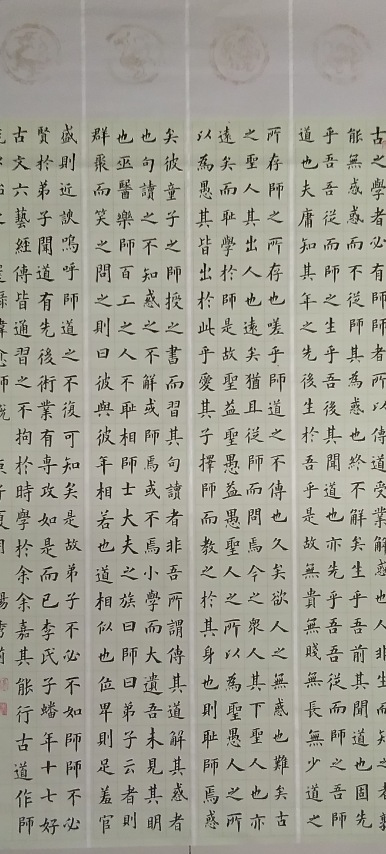 古之學者必有師師者所以傳道受業解惑也人非生而知之者孰
能無惑惑而不從師其為惑也終不解矣生乎吾前其聞道也固先
乎吾吾從而師之生乎吾後其聞道也亦先乎吾吾從而師之吾師
道也夫庸知其年之先後生於吾乎是故無貴無賤無長無少道之
所存師之所存也嗟乎師道之不傳也久矣欲人之無惑也難矣古
之聖人其出人也遠矣猶且從師而問焉今之眾人其下聖人也亦
遠矣而耻學於師是故聖益聖愚益愚聖人之所以為聖愚人之所
以為愚其皆出於此乎愛其子擇師而教之於其身也則耻師焉惑
矣彼童子之師授之書而習其句讀者非吾所謂傳其道解其惑者
也句讀之不知惑之不解或師焉或不焉小學而大遺吾未見其明
也巫醫樂師百工之人不耻相師士大夫之族曰師曰弟子云者則
群聚而笑之問之則曰彼與彼年相若也道相似也位卑則足羞官
盛則近諛嗚呼師道之不復可知矣是故弟子不必不如師師不必
賢於弟子聞道有先後術業有專攻如是而已李氏子蟠年十七好
古文六藝經傳皆通習之不拘於時學於余余嘉其能行古道作師